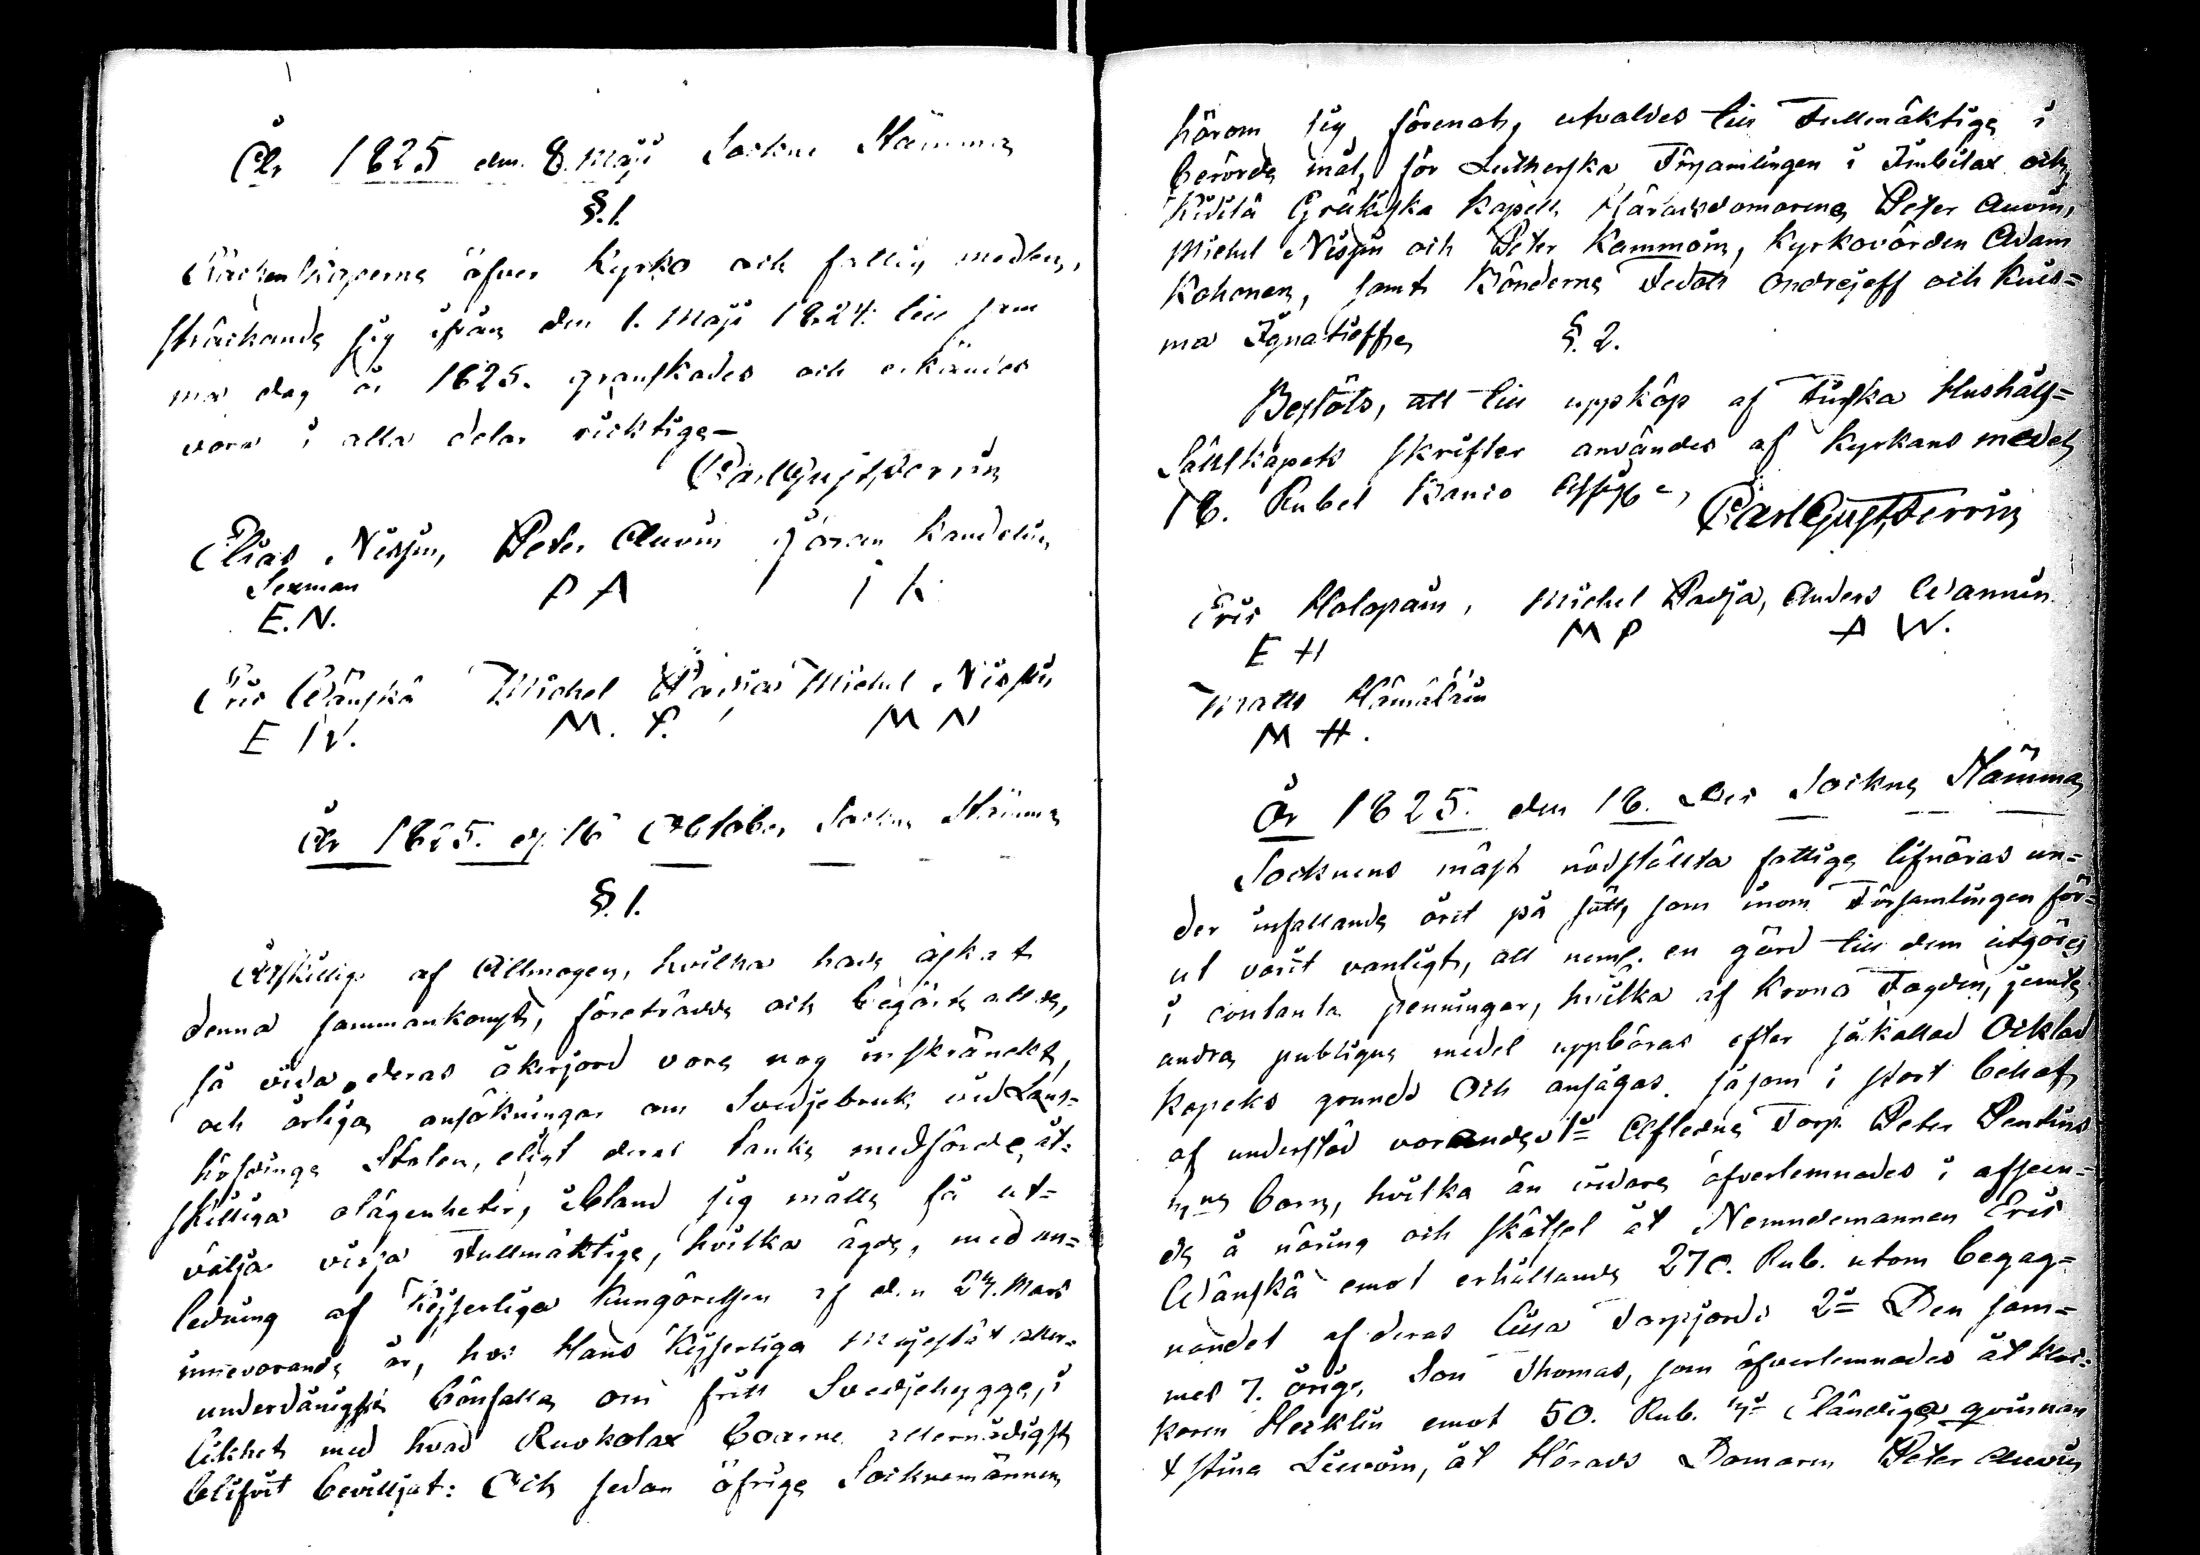 År 1825 den 8. Maji Sockne Stämma
§.1.
Räkenskaperne öfver Kyrko och fattig medlen,
sträckande sig ifrån den 1. Maji 1824. till sam
ma dag år 1825. granskades och erkändes
vara i alla delar ricktige—
Carl Gust. Ferrin
Elias Nissin, Peter Auvin Göran Kandelin
Sexman
E. N. P A I K
Eric Wänskä Michel Parjas Michel Nissin
E W. M. P. M N
År 1825. d. 16 October Sockne Stämma
§. 1.
Åtskillige af Allmogen, hvilka hade äskat
denna sammankomst, företrädde och begärte att de,
så vida deras åkerjord vore nog inskränckt,
och årliga ansökningar om Svedjebruk vid Lands-
höfdinge Stolen, eligt deras tanke medförde åt-
skilliga olägenheter, ibland sig måtte få ut-
välja vissa Fullmäktige, hvilka ägde, med an-
ledning af Kejserliga Kungörelsen af den 24. Mars
innevarande år, hos Hans Kejserliga Majestät aller-
underdånigste bönfalla om fritt Svedjehygge, i
likhet med hvad Ruokolax Boarne allernådigst
blifvit bevilljat: Och sedan öfrige Socknemännen
härom sig förenat, utvaldes till Fullmäktige i
berörde mål, för Lutherska Församlingen i Imbilax och
Kidilä Grekiska Kapell Häradsdomarena Peter Auvin,
Michel Nissin och Peter Kammoin, Kyrkovärden Adam
Kohonen, samt Bönderne Fedot Ondrejeff och Kuis=
ma Ignatieffe,
§. 2.
Beslöts, att till uppköp af Finska Hushåls=
Sällskapets skrifter användes af Kyrkans medel
18. Rubel Banco Assigr
Carl Gust. Ferrin
Eric Holopain, Michel Parja, Anders Wannin
E H M P A W.
Matts Hämäläin
M H.
År 1825. den 18. Dec Sockne Stämma
Socknens mäst nödställda fattige lifnäras un=
der infallande året på sätt, som inom Församlingen för=
ut varit vanligt, att neml. en gärd till dem utgöres
i contanta penningar, hvilka af Krono Fogden, jemte
andra publique medel uppbäras efter så kallad Ocklad
Kopeks grund. Och ansågos såsom i stort behof
af understöd varande 1o Afledne Torp. Peter Pentins
barn, hvilka än vidare öfverlemnades i afseen=
de å näring och skötsel åt Nemndemannen Eric
Wänskä emot erhållande 270. Rub. utom begag=
nandet af deras lilla Torpjord: 2o Den sam=
mes 7. årige Son Thomas, som öfverlemnades åt Kloc=
karen Hecklin emot 50. Rub. Eländiga qvinnan
Stina Liuvoin, åt Härads Domaren Peter Auvin